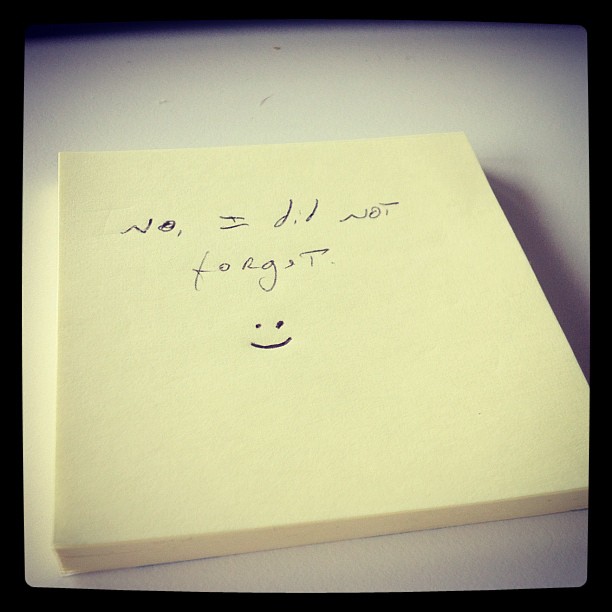 No, I did not
forget.